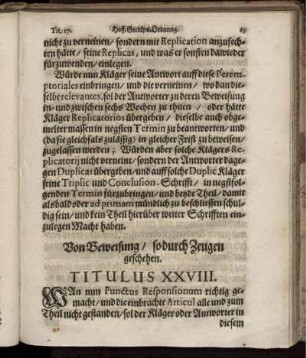 Tit. 27. Hoff-Gerichts-Ordnung. 63
nicht zu verneinen / sondern mit Replication anzufech-
ten hätte / seine Replicas, und was er sonsten dawieder
fürzuwenden / einlegen.
Würde nun Kläger seine Antwort auff diese Perem-
ptoriales einbringen / und die verneinen / wo dan die-
selbe relevantes, sol der Antworter zu deren Beweisung
in- und zwischen sechs Wochen zu ihnen / oder hätte
Kläger Replicatorios übergeben / dieselbe auch obge-
melter massen in negsten Termin zu beantworten / und
(da sie gleichfals zulässig) in gleicher Frist zu beweisen /
zugelassen werden ; Würden aber solche Klägers Re-
plicatorij nicht verneint / sondern der Antworter dage-
gen Duplicas übergeben / und auff solche Duplic Kläger
seine Triplic und Conclusion-Schrifft / in negstfol-
genden Termin fürzubringen / und beyde Theil / damit
alsbald oder ad primam mündlich zu beschliessen schul-
dig sein / und kein Theil hierüber weiter Schrifften ein-
zulegen Macht haben.
Von Beweisung / so durch Zeugen
geschehen.
TITULUS XXVIII.
WAn nun Punctus Responsionum richtig ge-
macht / und die einbrachte Articul alle und zum
Theil nicht gestanden / sol der Kläger oder Antworter in
diesem